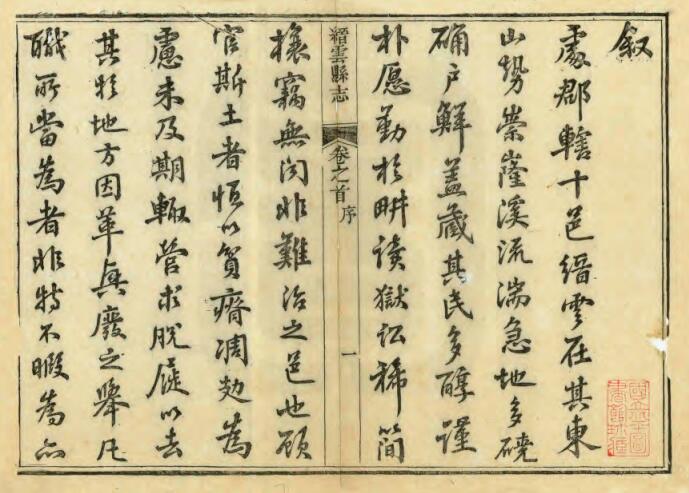 叙
處郡轄十邑縉雲在其東
山勢崇嶐溪流湍急地多磽
确戶鮮蓋藏其民多醇謹
朴愿勤於畊讀獄訟稀簡
縉雲縣志 卷之首 序 一
攘竊無聞非難治之邑也顧
官斯土者恒以貧瘠凋敝為
慮未及期輙營求脫屣以去
其於地方因革興廢之舉凡
職所當為者非特不暇為亦